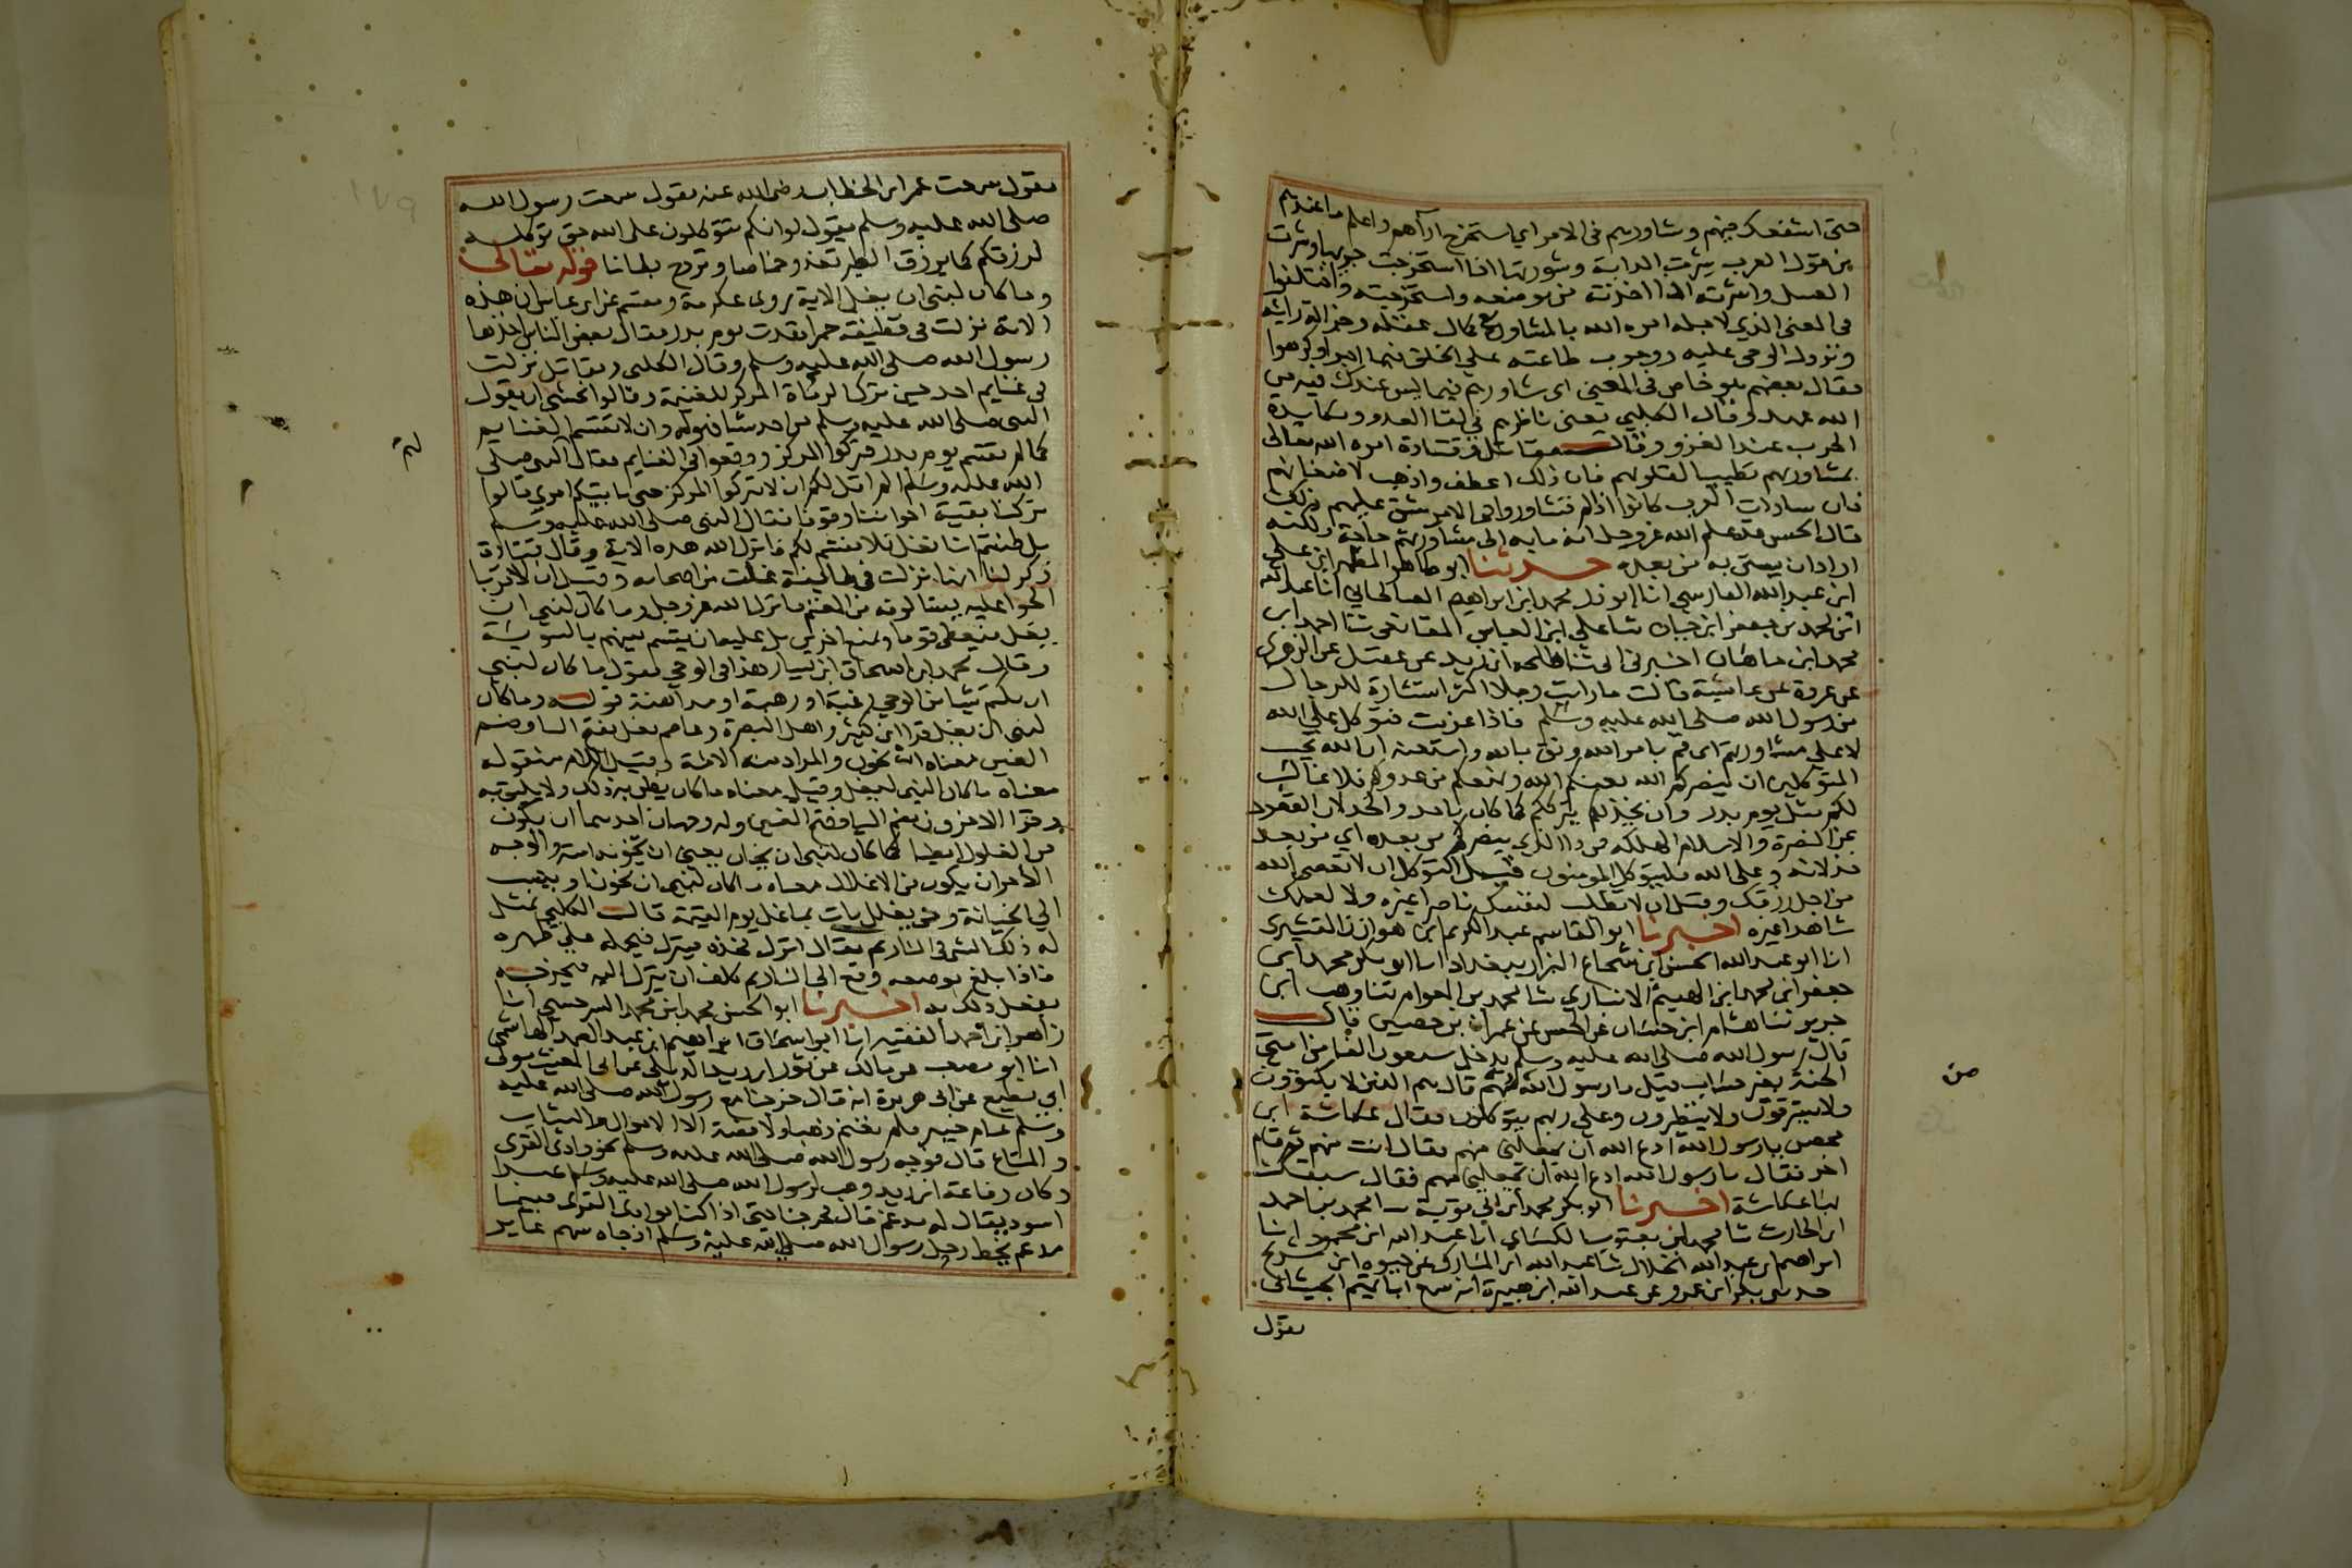 حتى اشفعك فيهم وشاورهم فى الامر اي استخرج ارآهم واعلم ما عندهم
من قول العرب شرت الدابة وشورتها اذا استخرجت جريها وشرت
العسل واشرته اذا اخذته من موضعه واستخرجته واختلفوا
فى المعنى الذي لاجله امره الله بالمشاورة مع كمال عقله وجزالة رايه
ونزول الوحى عليه ووجوب طاعته على الخلق فيما احبوا وكرهوا
فقال بعضهم هو خاص فى المعنى اى شاورهم فيما ليس عندك فيه من
الله عهد وقال الكلبي يعنى ناظرهم في لقا العدو ومكايدة
الحرب عند الغزو وقال مقاتل وقتادة امره الله تعالى
بمشاورتهم تطييبا لقلوبهم فان ذلك اعطف واذهب لاضغانهم
فان سادات العرب كانوا اذا لم تشاوروا فى الامر شق عليهم ذلك
قال الحسن قد علم الله عز وجل انه ما به الى مشاورتهم حاجة ولكنه
اراد ان يستن به من بعده حدثنا ابو طاهر المطهر ابن على
ابن عبد الله الفارسي انا ابو ذر محمد ابن ابراهيم الصالحاني انا عبد الله
ابن محمد بن جعفر ابن حيان ثنا علي ابن العباس المقانعى ثنا احمد ابن
محمد ابن ماهان اخبرنى ابى ثنا طلحة ابن زيد عن عقيل عن الزهرى
عن عروة عن عايشة قالت ما رايت رجلا اكثر استشارة للرجال
من رسول الله صلى الله عليه وسلم فاذا عزمت فتوكل على الله
لا على مشاورتهم اى قم بامر الله وثق بالله واستعنه ان الله يحب
المتوكلين ان ينصركم الله يعنكم الله ويمنعكم من عدوكم فلا غالب
لكم مثل يوم بدر وان يخذلكم يترككم كما كان باحد والخذلان القعود
عن النصرة والاسلام للهلكه فمن ذا الذي ينصركم من بعده اي من بعد
خذلانه وعلى الله فليتوكل المومنون قيل التوكل ان لا تعصى الله
من اجل رزقك وقيل ان لا تطلب لنفسك ناصرا غيره ولا لعملك
شاهدا غيره اخبرنا ابو القاسم عبد الكريم ابن هوازن القشيرى
انا ابو عبد الله الحسين ابن شجاع البزار ببغداد انا ابو بكر محمد ابن
جعفر ابن محمد ابن الهيثم الانباري ثنا محمد بن العوام ثنا وهب ابن
جرير ثنا هشام ابن حسان عن الحسن عن عمران بن حصين قال
قال رسول الله صلى الله عليه وسلم يدخل سبعون الفا من امتي
الجنة بغير حساب قيل يا رسول الله من هم قال هم الذين لا يكتوون
ولا يسترقون ولا يتطيرون وعلى ربهم يتوكلون فقال عكاشة ابن
محصن يا رسول الله ادع الله ان يجعلنى منهم فقال انت منهم ثم قام
اخر فقال يا رسول الله ادع الله ان يجعلني منهم فقال سبقك
بها عكاشة اخبرنا ابو بكر محمد ابن ابي توبة انا محمد بن احمد
ابن الحارث ثنا محمد ابن يعقوب الكسائي انا عبد الله ابن محمود انا
ابراهيم بن عبد الله الخلال ثنا عبد الله ابن المبارك عن حيوه ابن شريح
حدثنى بكر ابن عمرو عن عبد الله ابن هبيرة انه سمع ابا تميم الجيشانى
يقول
من
يقول سمعت عمر ابن الخطاب رضى الله عنه يقول سمعت رسول الله
صلى الله عليه وسلم يقول لو انكم تتوكلون على الله حق توكله
لرزقكم كما يرزق الطير تغدو خماصا وتروح بطانا قوله تعالى
وما كان لنبى ان يغل الاية روى عكرمة ومقسم عن ابن عباس ان هذه
الاية نزلت فى قطيفة حمرا فقدت يوم بدر فقال بعض الناس اخذها
رسول الله صلى الله عليه وسلم وقال الكلبى ومقاتل نزلت
فى غنايم احد حين ترك الرماة المركز للغنيمة وقالوا نخشى ان يقول
النبى صلى الله عليه وسلم من اخذ شيا فهو له وان لا تقسم الغنايم
كما لم تقسم يوم بدر فتركوا المركز ووقعوا فى الغنايم فقال النبى صلى
الله عليه وسلم الم اقل لكم ان لا تتركوا المركز حتى ياتيكم امري قالوا
تركنا بقية اخواننا وقوفا فقال النبى صلى الله عليه وسلم
بل ظننتم انا نغل فلا نقسم لكم فانزل الله هذه الاية وقال قتادة
ذكر لنا انها نزلت فى طايفة غلت من اصحابه وقيل ان الاقوياء
الحوا عليه يسالونه من المغنم فانزل الله عز وجل وما كان لنبي ان
يغل فيعطى قوما ويمنع اخرين بل عليه ان يقسم بينهم بالسوية
وقال محمد ابن اسحاق ابن يسار هذا فى الوحي يقول ما كان لنبي
ان يكتم شيا من الوحي رغبة او رهبة او مداهنة قوله وما كان
لنبى ان يغل قرا ابن كثير واهل البصرة وعاصم يغل بفتح اليا وضم
الغين معناه ان يخون والمراد منه الامة وقيل اللام منقوله
معناه ما كان النبى ليغل وقيل معناه ما كان يظن به ذلك ولا يليق به
وقرا الاخرون بضم اليا وفتح الغين وله وجهان احدهما ان يكون
من الغلول ايضا كما كان لنبى ان يخان يعني ان تخونه امته والوجه
الاخر ان يكون من الاغلال معناه ما كان لنبي ان يخون او ينسب
الى الخيانة ومن يغلل يات بما غل يوم القيمة قال الكلبي يمثل
له ذلك الشى فى النار ثم يقال انزل فخذه فينزل فيحمله على ظهره
فاذا بلغ موضعه وقع الى النار ثم كلف ان ينزل اليه فيخرجه
يفعل ذلك به اخبرنا ابو الحسن محمد ابن محمد السرخسي انا
زاهر ابن احمد الفقيه انا ابو اسحاق ابراهيم ابن عبد الصمد الهاشمى
انا ابو مصعب عن مالك عن ثور ابن زيد الديلى عن ابى الغيث مولى
ابي مطيع عن ابى هريرة انه قال خرجنا مع رسول الله صلى الله عليه
وسلم عام خيبر فلم نغنم ذهبا ولا فضة الا الاموال والثياب
والمتاع قال فوجه رسول الله صلى الله عليه وسلم نحو وادى القرى
وكان رفاعة ابن زيد وهب لرسول الله صلى الله عليه وسلم عبدا
اسود يقال له مدعم قال فخرجنا حتى اذا كنا بوادى القرى فبينما
مدعم يحط رحل رسول الله صلى الله عليه وسلم اذ جاه سهم عاير